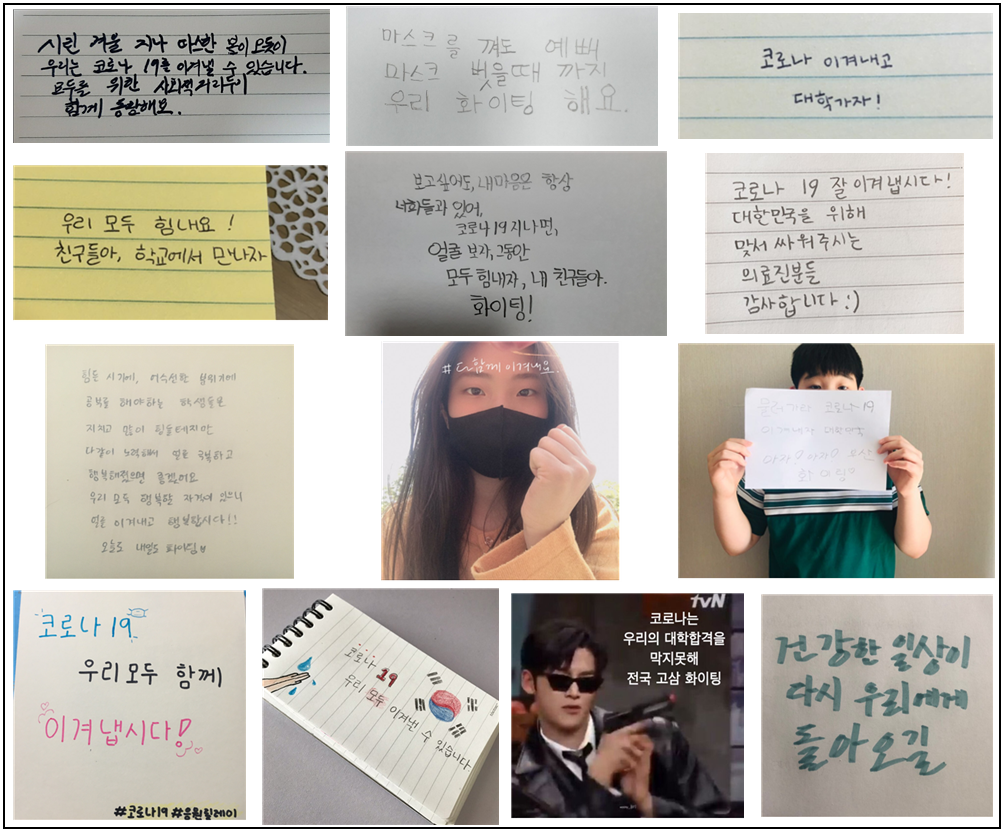 시린 겨울 지나 따스한 봄이 오듯이
우리는 코로나 19를 이겨낼 수 있습니다.
모두를 위한 사회적거리두기
함께 동참해요.
마스크를 껴도 예뻐
마스크 벗을때 까지
우리 화이팅 해요.
코로나 이겨내고
대학가자!
우리 모두 힘내요!
친구들아, 학교에서 만나자
보고싶어도, 내마음은 항상
너희들과 있어,
코로나19 지나면,
얼굴 보자, 그동안
모두 힘내자, 내 친구들아.
화이팅!
코로나 19 잘 이겨냅시다!
대한민국을 위해
맞서 싸워주시는
의료진분들
감사합니다 :)
힘든 시기에, 어수선한 분위기에
공부를 해야하는 학생들은
지치고 많이 힘들테지만
다같이 노력해서 얼른 극복하고
행복해졌으면 좋겠어요
우리 모두 행복할 자격이 있으니
얼른 이겨내고 행복합시다!!
오늘도 내일도 화이팅
#다함께 이겨내요.
물러가라 코로나19
이겨내자 대한민국
아자 아자 부산
화이팅
코로나19
우리모두 함께
이겨냅시다!
#코로나19 #응원릴레이
코로나 19
우리 모두 이겨낼 수 있습니다
tvN
코로나는
우리의 대학합격을
막지못해
전국 고삼 화이팅
건강한 일상이
다시 우리에게
돌아오길